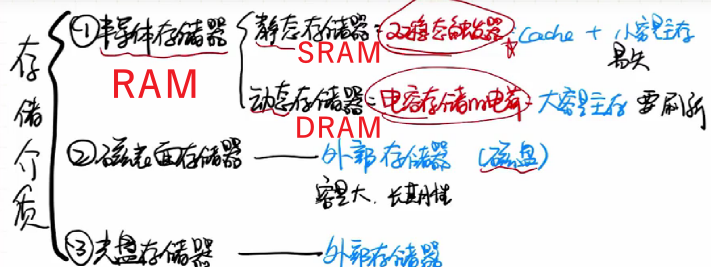 存储介质
①半导体存储器
RAM
静态存储器=双稳态触发器:Cache + 小容量主存
SRAM
易失
动态存储器=电容存储的电荷=大容量主存 要刷新
DRAM
②磁表面存储器——外部存储器(磁盘)
容量大、长期性
③光盘存储器——外部存储器